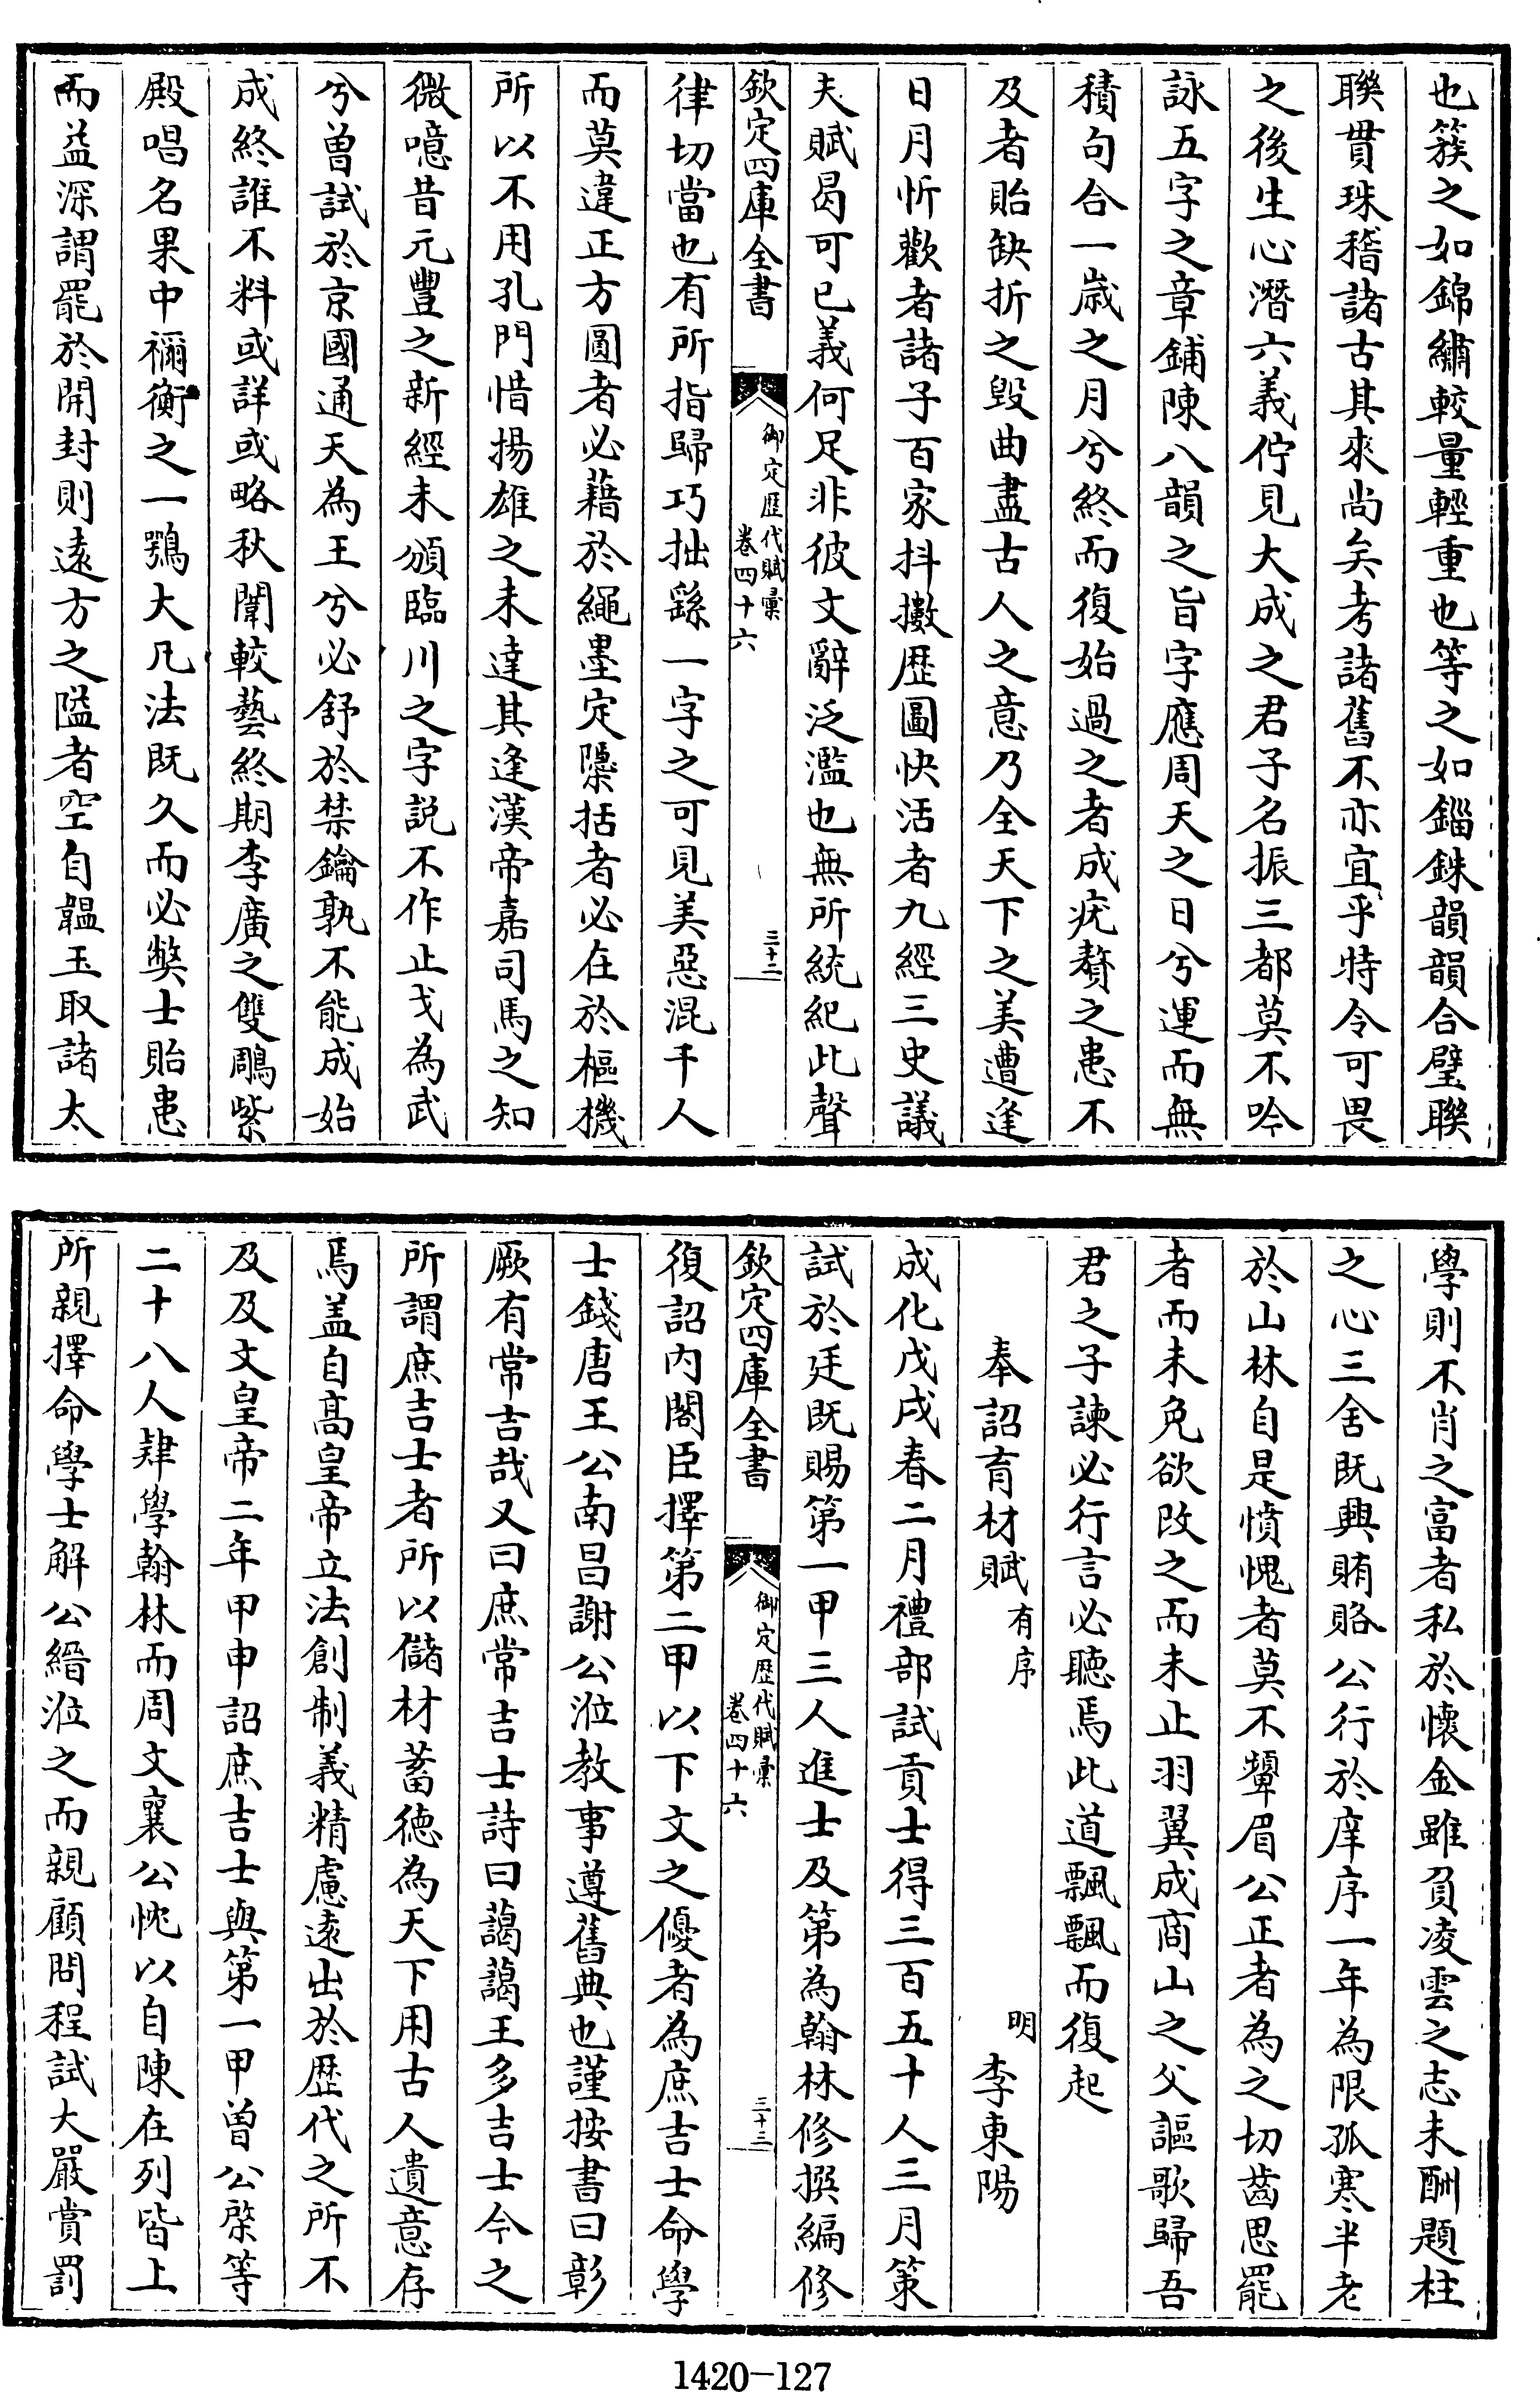 也簇之如錦繡較量輕重也等之如錙銖韻韻合璧聯
聯貫珠稽諸古其來尚矣考諸舊不亦宜乎特令可畏
之後生心潛六義佇見大成之君子名振三都莫不吟
詠五字之章鋪陳八韻之旨字應周天之日兮運而無
積句合一歲之月兮終而復始過之者成疣贅之患不
及者貽缺折之毀曲盡古人之意乃全天下之美遭逢
日月忻歡者諸子百家抖擻歷圖快活者九經三史議
夫賦曷可已義何足非彼文辭泛濫也無所統紀此聲
欽定四庫全書
御定歷代賦彙
卷四十六
三十二
律切當也有所指歸巧拙繇一字之可見美惡混千人
而莫違正方圓者必藉於繩墨定隱括者必在於樞機
所以不用孔門惜揚雄之未達其逢漢帝嘉司馬之知
微噫昔元豐之新經未頒臨川之字說不作止戈為武
兮曾試於京國通天為王兮必舒於禁鑰孰不能成始
成終誰不料或詳或略秋闈較藝終期李廣之雙鵰紫
殿唱名果中禰衡之一鶚大凡法既久而必弊士貽患
而益深謂罷於開封則遠方之隘者空自韞玉取諸太
學則不肖之富者私於懷金雖負凌雲之志未酬題柱
之心三舍既興賄賂公行於庠序一年為限孤寒半老
於山林自是憤愧者莫不顰眉公正者為之切齒思罷
者而未免欲改之而未止羽翼成商山之父謳歌歸吾
君之子諫必行言必聽焉此道飄飄而復起
奉詔育材賦有序
明 李東陽
成化戊戌春二月禮部試貢士得三百五十人三月策
試於廷既賜第一甲三人進士及第為翰林修撰編修
欽定四庫全書
御定歷代賦彙
卷四十六
三十三
復詔內閣臣擇第二甲以下文之優者為庶吉士命學
士錢唐王公南昌謝公涖教事遵舊典也謹按書曰彰
厥有常吉哉又曰庶常吉士詩曰藹藹王多吉士今之
所謂庶吉士者所以儲材蓄德為天下用古人遺意存
焉盖自高皇帝立法創制義精慮遠出於歷代之所不
及及文皇帝二年甲申詔庶吉士與第一甲曾公棨等
二十八人肄學翰林而周文襄公忱以自陳在列皆上
所親擇命學士解公縉涖之而親顧問程試大嚴賞罰
1420-127